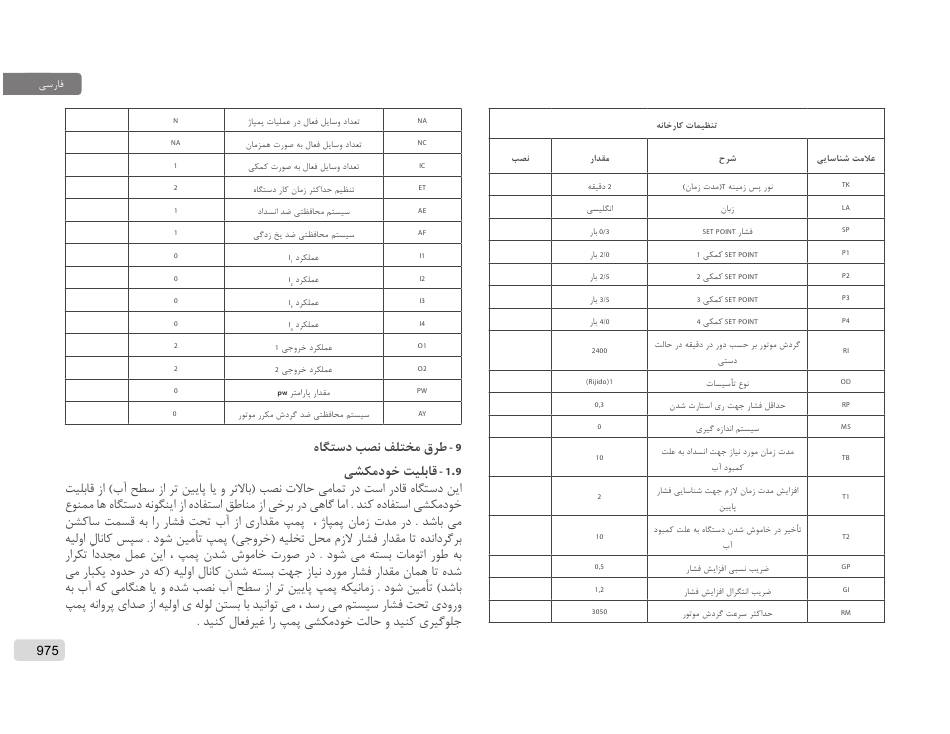 فارسی
تنظیمات کارخانه
علامت شناسایی شرح مقدار نصب
TK نور پس زمینه T(مدت زمان) 2 دقیقه
LA زبان انگلیسی
SP فشار SET POINT 0/3 بار
P1 SET POINT کمکی 1 2/0 بار
P2 SET POINT کمکی 2 2/5 بار
P3 SET POINT کمکی 3 3/5 بار
P4 SET POINT کمکی 4 4/0 بار
RI گردش موتور بر حسب دور در دقیقه در حالت 2400
دستی
OD نوع تأسیسات 1(Rijido)
RP حداقل فشار جهت ری استارت شدن 0,3
MS سیستم اندازه گیری 0
TB مدت زمان مورد نیاز جهت انسداد به علت 10
کمبود آب
T1 افزایش مدت زمان لازم جهت شناسایی فشار 2
پایین
T2 تأخیر در خاموش شدن دستگاه به علت کمبود 10
آب
GP ضریب نسبی افزایش فشار 0,5
GI ضریب انتگرال افزایش فشار 1,2
RM حداکثر سرعت گردش موتور 3050
NA تعداد وسایل فعال در عملیات پمپاژ N
NC تعداد وسایل فعال به صورت همزمان NA
IC تعداد وسایل فعال به صورت کمکی 1
ET تنظیم حداکثر زمان کار دستگاه 2
AE سیستم محافظتی ضد انسداد 1
AF سیستم محافظتی ضد یخ زدگی 1
I1 عملکرد I 0
I2 عملکرد I 0
I3 عملکرد I 0
I4 عملکرد I 0
O1 عملکرد خروجی 1 2
O2 عملکرد خروجی 2 2
PW مقدار پارامتر pw 0
AY سیستم محافظتی ضد گردش مکرر موتور 0
9 - طرق مختلف نصب دستگاه
1.9 - قابلیت خودمکشی
این دستگاه قادر است در تمامی حالات نصب (بالاتر و یا پایین تر از سطح آب) از قابلیت
خودمکشی استفاده کند . اما گاهی در برخی از مناطق استفاده از اینگونه دستگاه ها ممنوع
می باشد . در مدت زمان پمپاژ ، پمپ مقداری از آب تحت فشار را به قسمت ساکشن
برگردانده تا مقدار فشار لازم محل تخلیه (خروجی) پمپ تأمین شود . سپس کانال اولیه
به طور اتومات بسته می شود . در صورت خاموش شدن پمپ ، این عمل مجددا تکرار
شده تا همان مقدار فشار مورد نیاز جهت بسته شدن کانال اولیه (که در حدود یکبار می
باشد) تأمین شود . زمانیکه پمپ پایین تر از سطح آب نصب شده و یا هنگامی که آب به
ورودی تحت فشار سیستم می رسد ، می توانید با بستن لوله ی اولیه از صدای پروانه پمپ
جلوگیری کنید و حالت خودمکشی پمپ را غیرفعال کنید .
975